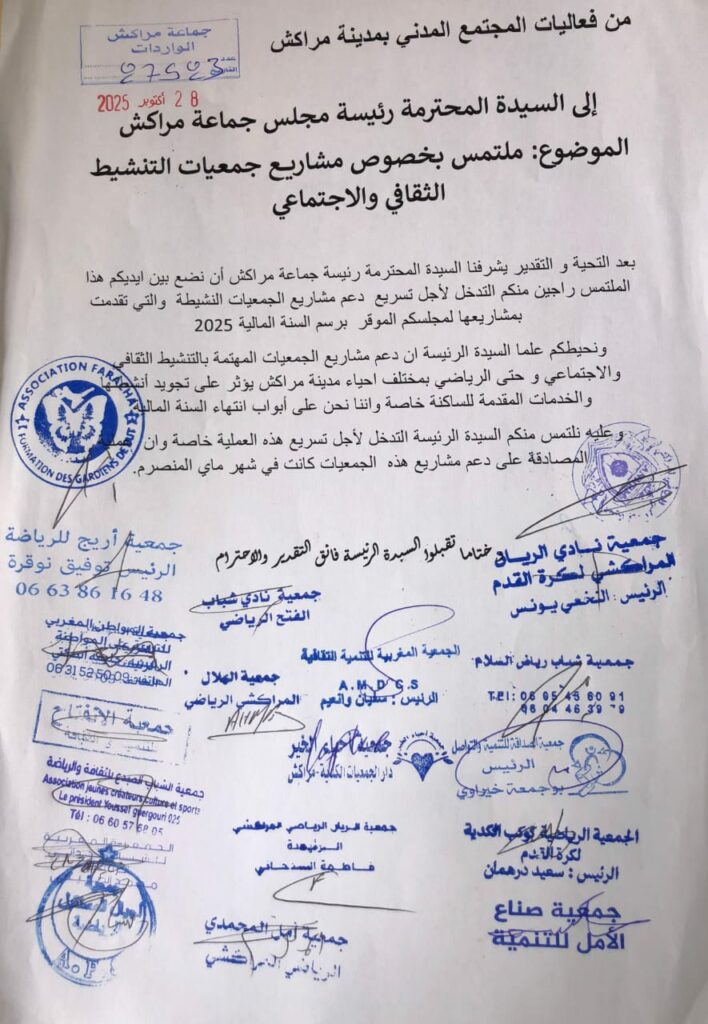 من فعاليات المجتمع المدني بمدينة مراكش
جماعة مراكش
الواردات
عدد 27523
28 أكتوبر 2025
إلى السيدة المحترمة رئيسة مجلس جماعة مراكش
الموضوع: ملتمس بخصوص مشاريع جمعيات التنشيط
الثقافي والاجتماعي
بعد التحية و التقدير يشرفنا السيدة المحترمة رئيسة جماعة مراكش أن نضع بين ايديكم هذا
الملتمس راجين منكم التدخل لأجل تسريع دعم مشاريع الجمعيات النشيطة والتي تقدمت
بمشاريعها لمجلسكم الموقر برسم السنة المالية 2025
ونحيطكم علما السيدة الرئيسة ان دعم مشاريع الجمعيات المهتمة بالتنشيط الثقافي
والاجتماعي و حتى الرياضي بمختلف احياء مدينة مراكش يؤثر على تجويد أنشطتها
والخدمات المقدمة للساكنة خاصة واننا نحن على أبواب انتهاء السنة المالية
وعليه نلتمس منكم السيدة الرئيسة التدخل لأجل تسريع هذه العملية خاصة وان
المصادقة على دعم مشاريع هذه الجمعيات كانت في شهر ماي المنصرم.
ختاما تقبلوا السيدة الرئيسة فائق التقدير والاحترام
ASSOCIATION FARACHA
FORMATION DES GARDIENS DE BUT
جمعية أريج للرياضة
الرئيس توفيق نوقرة
06 63 86 16 48
جمعية نادي الريان
المراكشي لكرة القدم
الرئيس: النخعي يونس
جمعية نادي شباب
الفتح الرياضي
جمعية المواطن المغربي
الجمعية المغربية للتنمية الثقافية
A.M.D.C.S
الرئيس: سفيان وانعيم
جمعية شباب رياض السلام
جمعية الهلال
المراكشي الرياضي
جمعية الانفتاح
جمعية أحياء الخير
دار الجمعيات الكدية-مراكش
جمعية الصداقة للتنمية والتواصل
الرئيس
بوجمعة خيراوي
جمعية الشباب المبدع للثقافة والرياضة
Association jeunes créateurs culture et sports
Le président Youssef guergouri 025
Tél : 06 60 57 68 05
جمعية الريان الرياضي المراكشي
الرئيسة
الجمعية الرياضية كوكب الكدية
لكرة القدم
الرئيس: سعيد درهمان
A.F
جمعية أمل المحمدي
الرياضي المراكشي
جمعية صناع
الأمل للتنمية